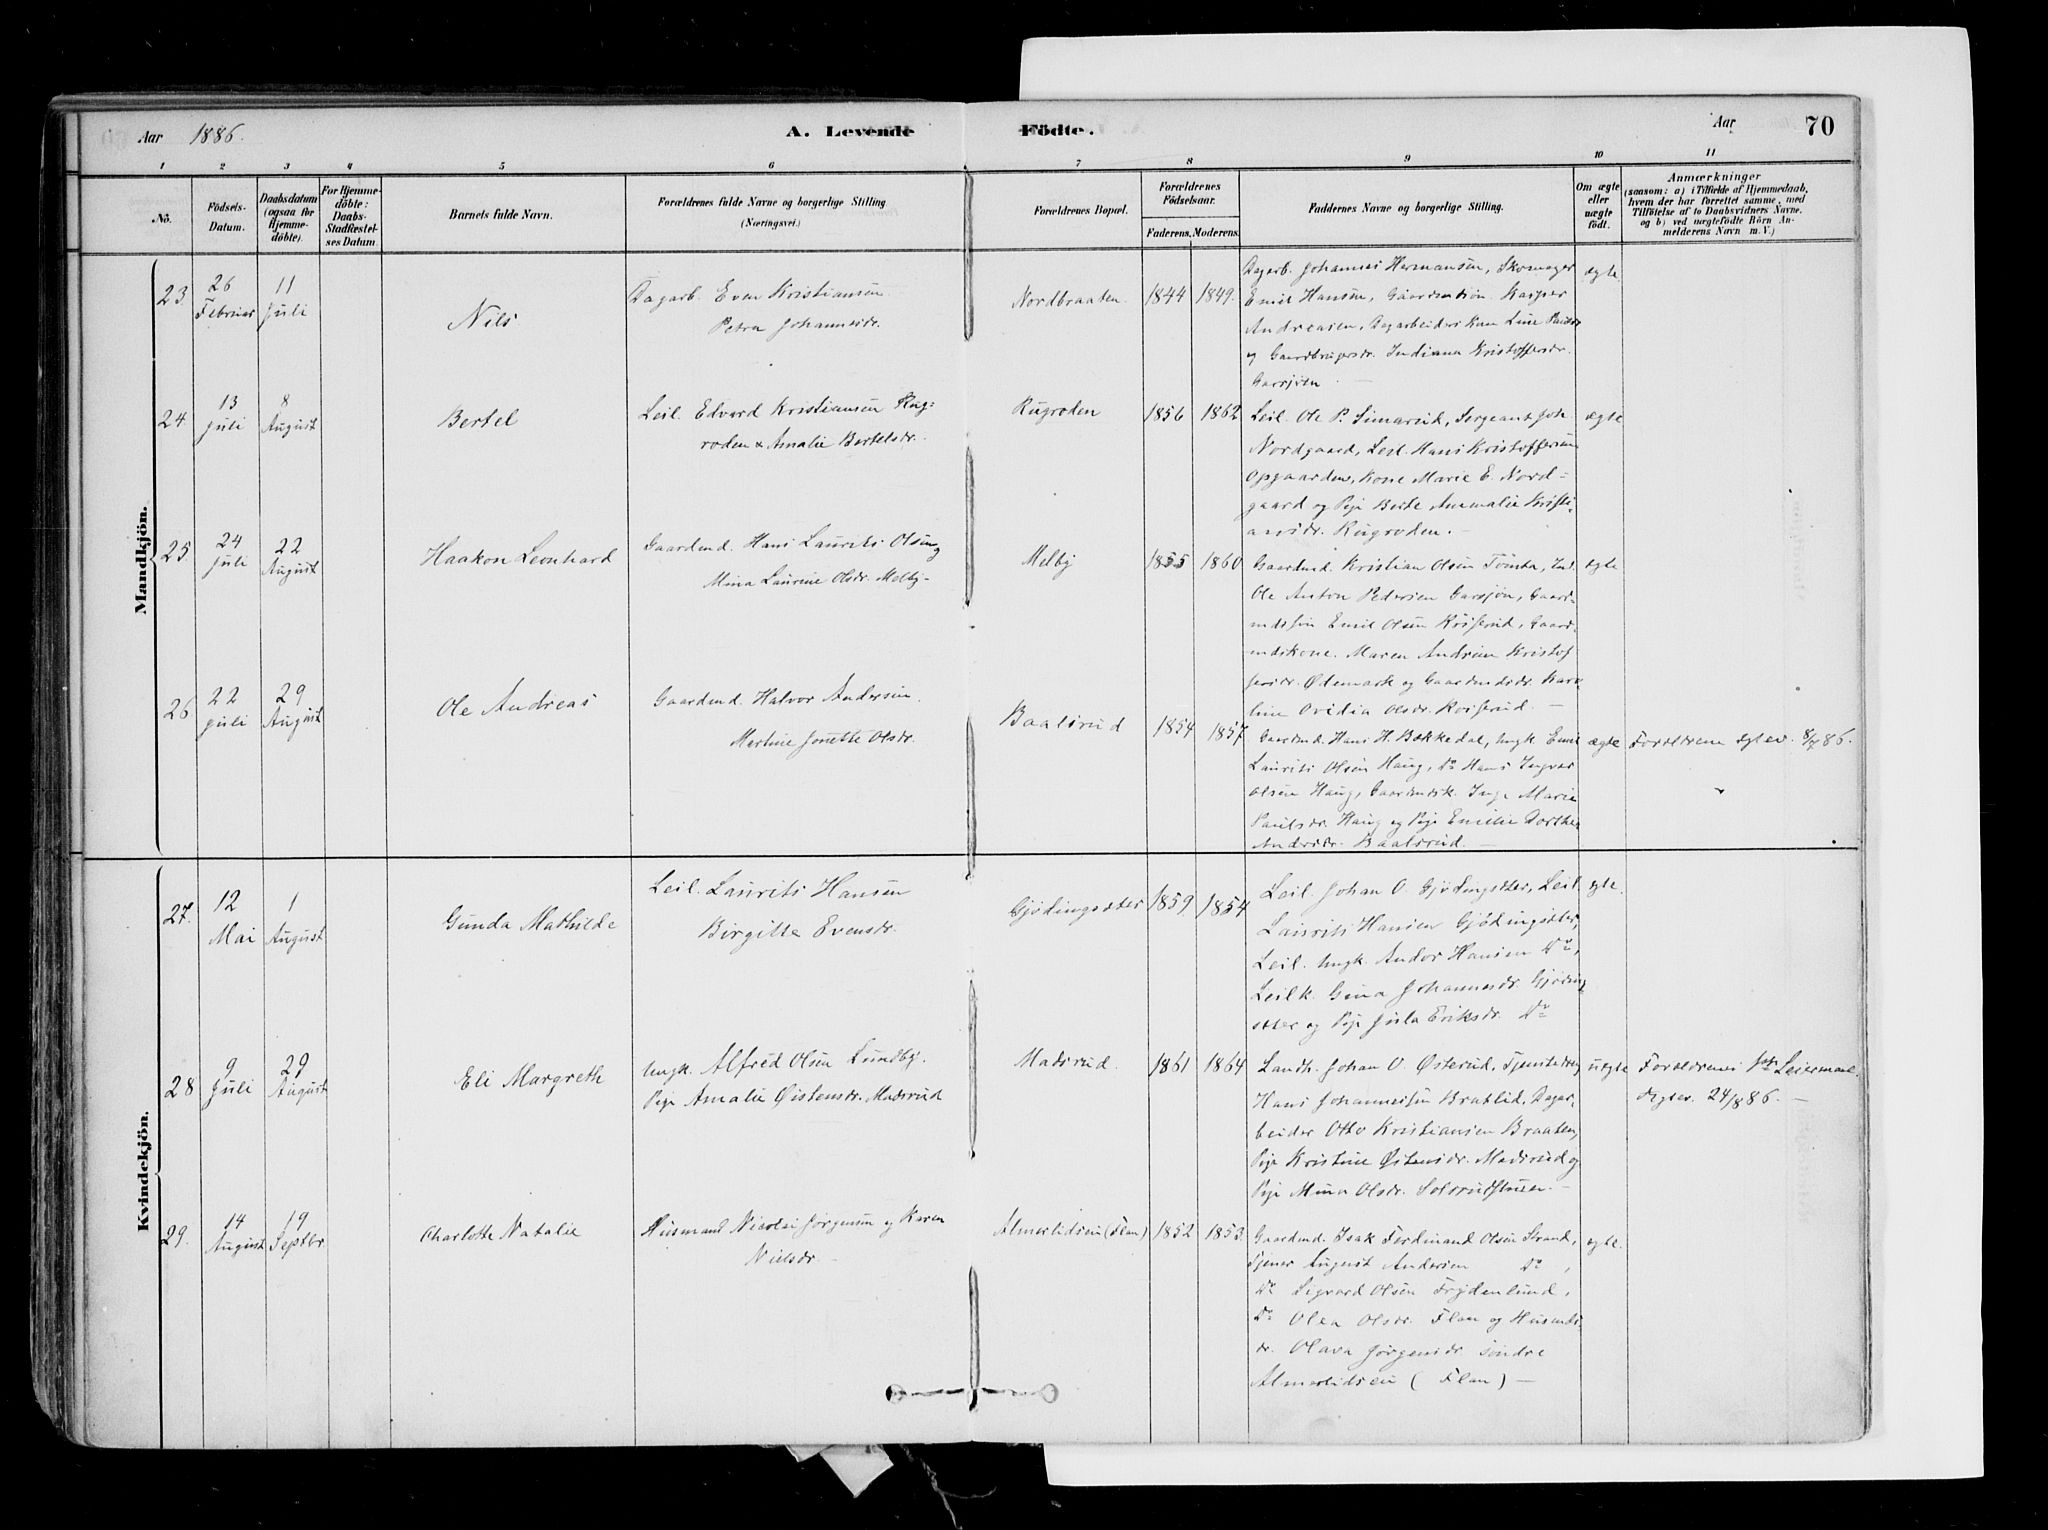 Aar 1886. A. Levende Födte. Aar 70
1 2 3 4 5 6 7 8 9 10 11
No. Födsels-Datum. Daabsdatum (ogsaa for Hjemme-döbte). For Hjemme-döbte: Daabs-Stadfæstel-ses Datum. Barnets fulde Navn. Forældrenes fulde Navne og borgerlige Stilling (Næringsvei.) Forældrenes Bopæl. Forældrenes Födselsaar. Faderens. Moderens. Faddernes Navne og borgerlige Stilling. Om ægte eller uægte födt. Anmærkninger (saasom: a) i Tilfælde af Hjemmedaab, hvem der har forrettet samme, med Tilföielse af to Daabsvidners Navne. og b) ved uægtefödte Börn An-melderens Navn m. V.)
Mandkjön.
23. 26 Februar 11 Juli
Nils
Dagarb. Even Kristiansen
Petra Johannesdr.
Nordbraaten. 1844 1849.
Dagarb. Johannes Hermansen, Skomager
Emil Hansen, Gaardmandsøn Kasper
Andreasen, Dagarbeiders Kone Line
og Gaardbrugerdr. Indiana Kristoffersdr.
Garsjøen. —
ægte
24. 13 Juli 8 August
Bertel
Leil. Edvard Kristiansen Rug-
roden & Amalie Bertelsdr.
Rugroden 1856 1862
Leil. Ole P. Simarud, Sergeant Joh.
Nordgaard, Leil. Hans Kristoffersen
Opgaarden, Kone Marie E. Nord-
gaard og Pige Berte Annmalie Kristi-
ansdr. Rugroden. —
ægte
25. 24 Juli 22 August
Haakon Leonhard
Gaardmd. Hans Laurits Olsen og
Mina Laurine Olsdr. Melby-
Melby 1855 1860
Gaardmd. Kristian Olsen Tomta, Ind.
Ole Anton Pedersen Garsjøn, Gaard-
mdssøn Emil Olsen Kroiserud, Gaard-
mdskone. Maren Andrine Kristof
fersdr. Ødemark og Gaardmdsdr. Karo-
line Ovidia Olsdr. Kroiserud. —
ægte
26. 22 Juli 29 August
Ole Andreas
Gaardmd. Halvor Andersen
Martine Jonette Olsdr.
Baalsrud 1854 1857
Gaardmd. Hans H. Bekkedal, Ungk. Emil
Laurits Olsen Haug, Do Hans Ingvar
Olsen Haug, Gaardmdsk. Inge Marie
Paulsdr. Haug og Pige Emilie Dorthea
Andersdr. Baalsrud. —
ægte
Forældrene ægtev. 8/7 86.
Kvindekjön.
27. 12 Mai 1 August
Gunda Mathilde
Leil. Laurits Hansen
Birgitte Evensdr.
Gjødingsæter 1859 1854
Leil. Johan O. Gjødingsæter, Leil.
Laurits Hansen Gjødingsæter,
Leil. Ungk. Andor Hansen Do,
Leilk. Gina Johannesdr. Gjøding
sæter og Pige Jula Eriksdr. Do
ægte.
28 9 Juli 29 August
Eli Margreth
Ungk. Alfred Olsen Lundby.
Pige Amalie Øistensdr. Madsrud
Madsrud. 1861 1864
Landh. Johan O. Østerud, Tjenstedreng
Hans Johannessen Bratlid, Dagar-
beider Otto Kristiansen Braaten,
Pige Kristine Østensdr. Madsrud og
Pige Mina Olsdr. Solsrudstuen. —
uægte
Forældrenes 1ste Leiermaal.
Ægtev. 24/8 86. —
29. 14 August 19 Septbr.
Charlotte Natalie
Husmand Nicolai Jørgensen og Karen
Nielsdr.
Almerlidseie (Flan) 1852 1853.
Gaardmd. Isak Ferdinand Olsen Strand,
Tjener August Andersen Do ,
Do Sigvard Olsen Frydenlund,
Do Olea Olsdr. Flan og Husmds-
dr. Olava Jørgensdr. søndre
Almerlidseie (Flan) —
ægte.